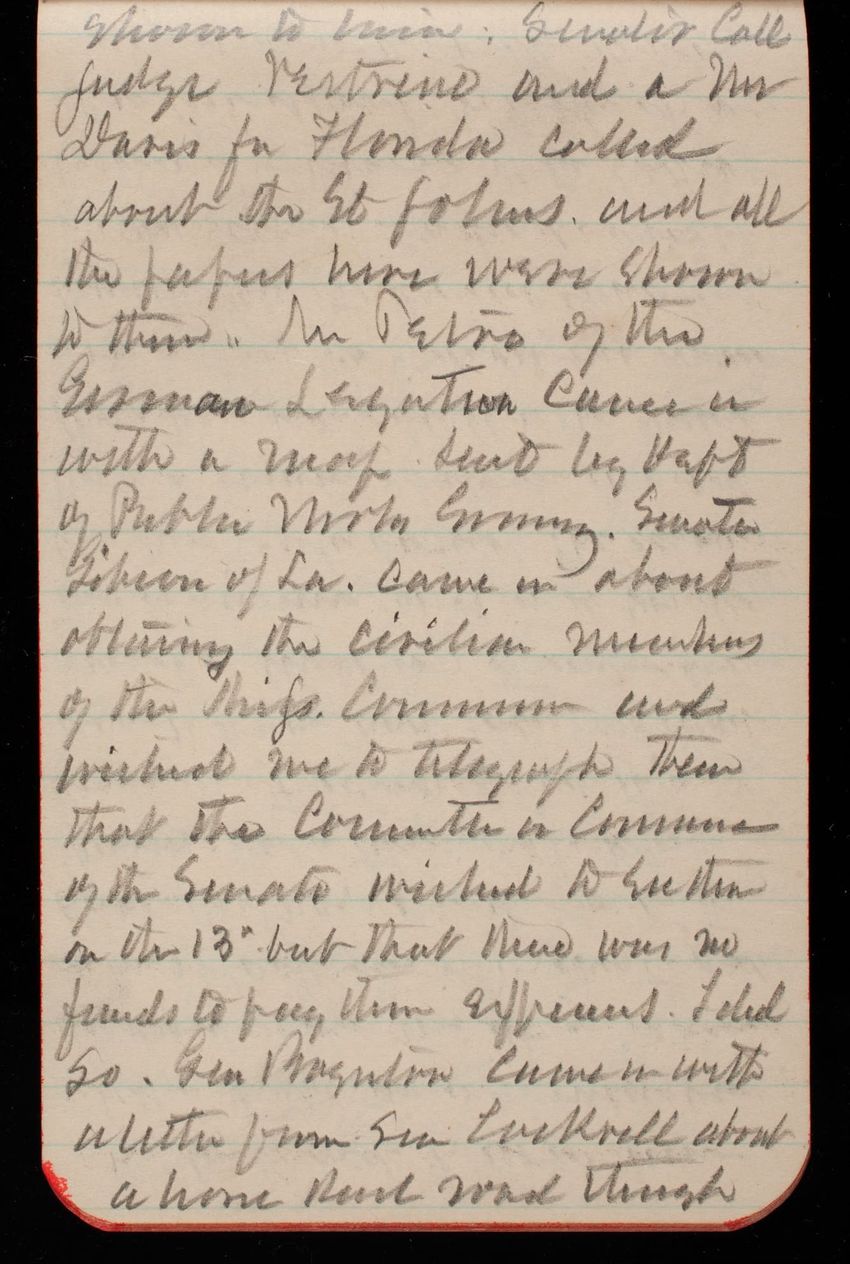 shown to him. Senator Call
Judge Vestrino and a Mr
Davis fr Florida called
about the St Johns. and all
the papers here were shown
to them. Mr Petro of the
German Legation came in
with a map sent by Dept
of Public Works Germany. Senator
Gibson of La. came in about
obtaing the civilian members
of the Miss. Commission and
wished me to telegraph them
that the Committee on Commerce
of the Senate wished to see them
on the 13" but that there was no
funds to pay them expenses. I did
so. Gen Boynton came in with
a letter from Sen Cockrell about
a horse rail road through